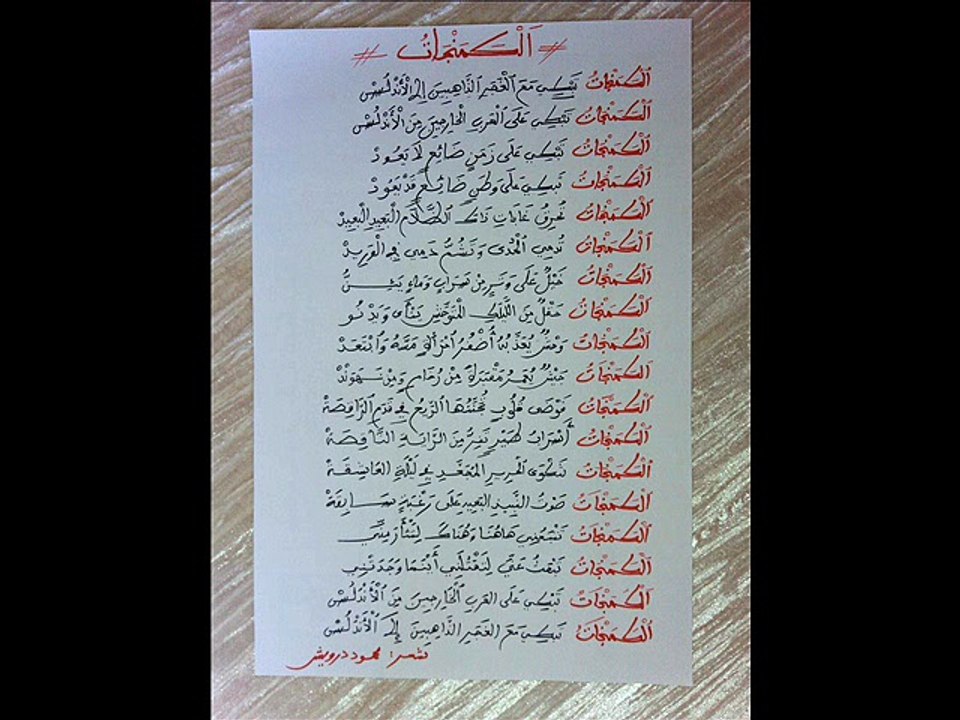 # اَلْكَمَنْجَاتُ #
اَلْكَمَنْجَاتُ تَبْكِي مَعَ اَلْغَجَرِ اَلذَّاهِبِينَ إِلَى اَلْأَنْدَلُسْ
اَلْكَمَنْجَاتُ تَبْكِي عَلَى اَلْعَرَبِ اَلْخَارِجِينَ مِنَ اَلْأَنْدَلُسْ
اَلْكَمَنْجَاتُ تَبْكِي عَلَى زَمَنٍ ضَائِعٍ لَا يَعُودْ
اَلْكَمَنْجَاتُ تَبْكِي عَلَى وَطَنٍ ضَائِعٍ قَدْ يَعُودْ
اَلْكَمَنْجَاتُ تُحْرِقُ غَابَاتِ ذَاكَ اَلظَّلَامِ اَلْبَعِيدِ اَلْبَعِيدْ
اَلْكَمَنْجَاتُ تُدْمِي اَلْمُدَى وَتَشُمُّ دَمِي فِي اَلْوَرِيدْ
اَلْكَمَنْجَاتُ خَيْلٌ عَلَى وَتَرٍ مِنْ سَرَابٍ وَمَاءٍ يَئِنُّ
اَلْكَمَنْجَاتُ حَقْلٌ مِنَ اَللَّيْلَكِ اَلْمُتَوَحِّشِ يَنْأَى وَيَدْنُو
اَلْكَمَنْجَاتُ وَحْشٌ يُعَذِّبُهُ أُظْفُرُ اِمْرَأَةٍ مَسَّهُ وَاَبْتَعَدْ
اَلْكَمَنْجَاتُ جَيْشٌ يُعَمِّرُ مَقْبَرَةً مِنْ رُخَامٍ وَمِنْ نَهَوَنْدْ
اَلْكَمَنْجَاتُ فَوْضَى قُلُوبٍ تُجَنِّنُهَا اَلرِّيحُ فِي قَدَمِ اَلرَّاقِصَةْ
اَلْكَمَنْجَاتُ أَسْرَابُ طَيْرٍ تَفِرُّ مِنَ اَلرَّايَةِ اَلنَّاقِصَةْ
اَلْكَمَنْجَاتُ شَكْوَى اَلْحَرِيرِ اَلْمُجَعَّدِ فِي لَيْلَةِ اَلْعَاشِقَةْ
اَلْكَمَنْجَاتُ صَوْتُ اَلنَّبِيذِ اَلْبَعِيدِ عَلَى رَغْبَةٍ سَابِقَةْ
اَلْكَمَنْجَاتُ تَتْبَعُنِي هَاهُنَا وَهُنَاكَ لِتَثْأَرَ مِنِّي
اَلْكَمَنْجَاتُ تَبْحَثُ عَنِّي لِتَقْتُلَنِي أَيْنَمَا وَجَدَتْنِي
اَلْكَمَنْجَاتُ تَبْكِي عَلَى اَلْعَرَبِ اَلْخَارِجِينَ مِنَ اَلْأَنْدَلُسْ
اَلْكَمَنْجَاتُ تَبْكِي مَعَ اَلْغَجَرِ اَلذَّاهِبِينَ إِلَى اَلْأَنْدَلُسْ
شعر: محمود درويش